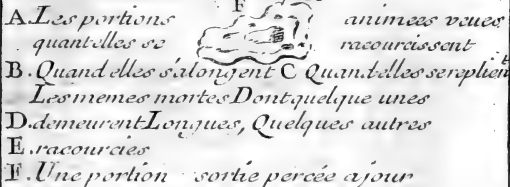 F
A. Les portions animees veues
quant elles se racourcissent
B. Quand elles s'alongent C Quand elles se replient
Les memes mortes Dont quelque unes
D. demeurent Longues, Quelques autres
E. racourcies
F. Une portion sortie percée a jour